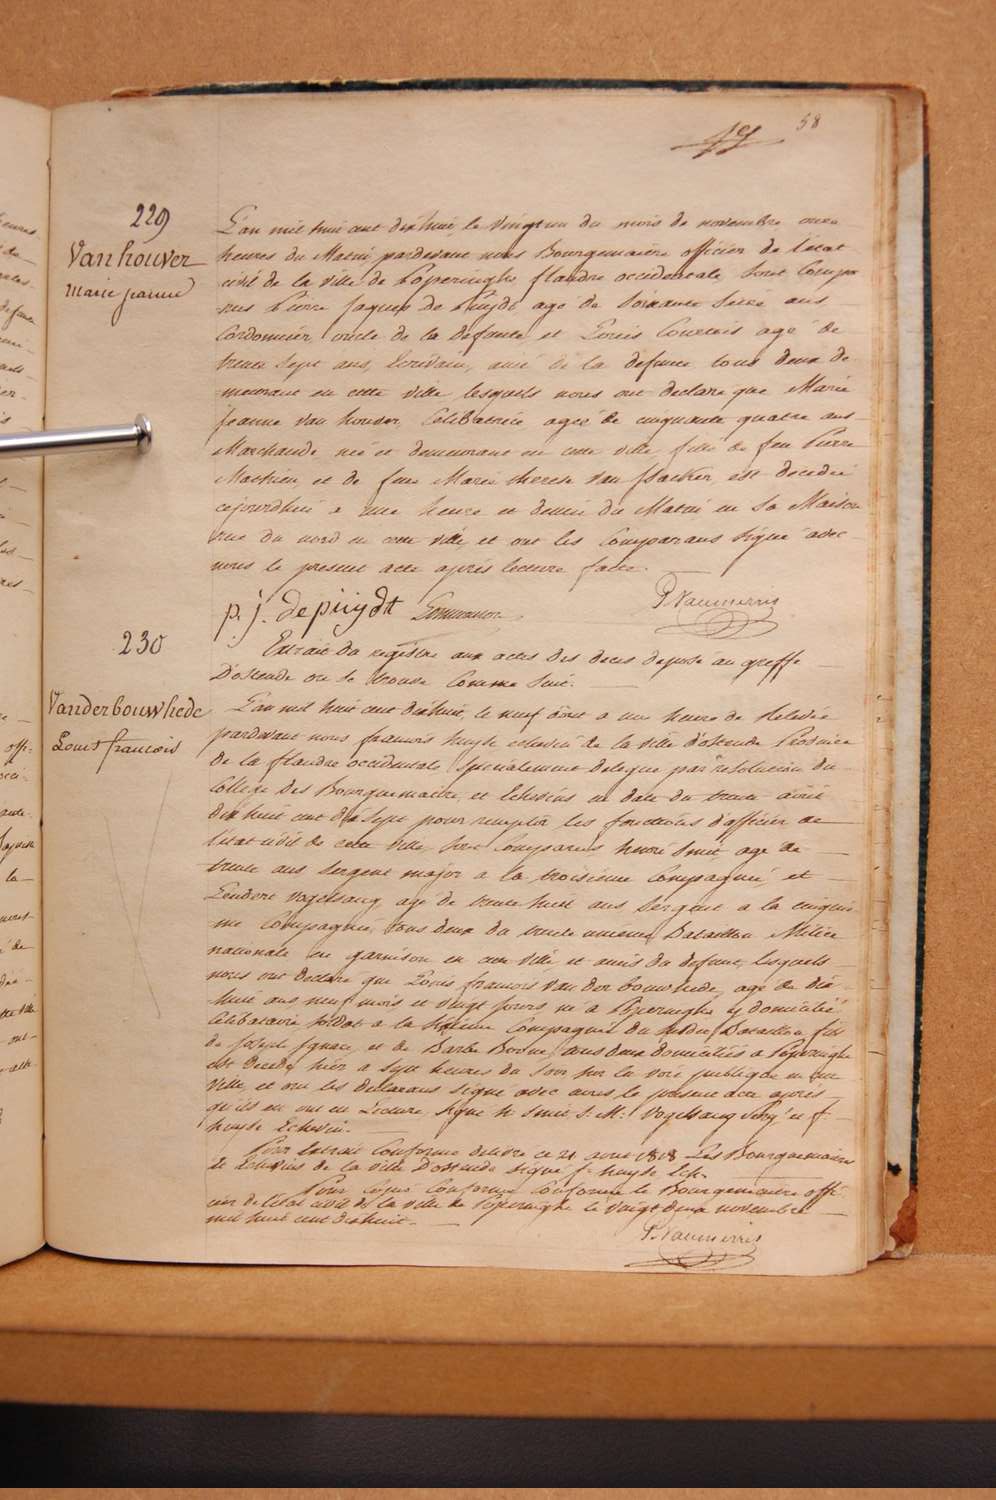 58
229
Van houver
Marie jeanne
L'an mil huit cent dix huit, le vingt un du mois de novembre onze
heures du Matin pardevant nous Bourgemaitre officier de l'etat
civil de la ville de Poperinghe flandre occidentale, sont Compa
rus Pierre Jaques de Puydt age de soixante seize ans
Cordonnier, oncle de la defunte et Louis Courtois agé de
trente sept ans, Ecrivain, ami de la defunte tous deux de
meurant en cette ville lesquels nous ont declare que Marie
jeanne van houver, Celibatrice agee de cinquante quatre ans
Marchande, née et demeurant en cette ville, fille de feu Pierre
Mathieu et de feue Marie therese Van est decedée
cejourdhui a une heure et demie du Matin en sa Maison
rue du nord en cette ville et ont les Comparans signé avec
nous le present acte après lecture faite.
p. j. de puydt
P. Vanmerris
230
Vanderbouwhede
Louis francois
Extrait du registre aux actes des deces deposé au greffe
D'ostende ou se trouve Comme suit.
L'an mil huit cent dix huit, le neuf a une heure de Relevée
pardevant nous francois huyse echevin de la ville d'ostende Province
de la flandre occidentale, specialement delegue par resolution du
College des Bourguemaitre et Echevins en date du trente
dix huit cent dix sept pour remplir les fonctions d'officier de
l'etat civil de cette ville sont Comparus henri Smit age de
trente ans sergent major a la troisieme Compagnie et
Lendert Vogelsang agé de trente huit ans sergent a la cinquie
me Compagnie, tous deux du trente unieme Bataillon Milice
nationale en garnison en cette ville et amis du defunt, lesquels
nous ont declaré que Louis francois Van der bouwhede, age de dix
huit ans neuf mois et vingt jours né a Poperinghe y domicilié
Celibataire soldat a la sixieme Compagnie du susdit Bataillon, fils
de Joseph Ignace, et de Barbe tous deux domiciliés a Poperinghe
est decede hier a sept heures du soir sur la voie publique en cette
Ville, et ont les declarans signé avec nous le present acte après
qu'ils en ont eu Lecture, signe h Smit, S. M. Vogelsang Serg. et f.
huyse Echevin.
Pour Extrait Conforme delivré ce 21 1818 Les Bourguemaitre
et Echevins de la ville D'ostende signé f. huyse Ech.
Pour Copie Conforme Conforme le Bourgemaitre offi
cier de l'etat civil de la ville de Poperinghe le vingt deux novembre
mil huit cent dixhuit.
P. Vanmerris